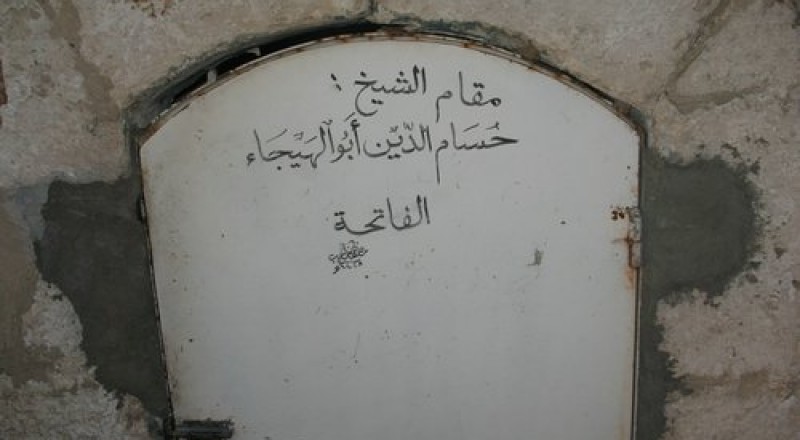 مقام الشيخ :
حُسَام الدِّيْن أَبُو الهَيْجَاء
الفاتحة